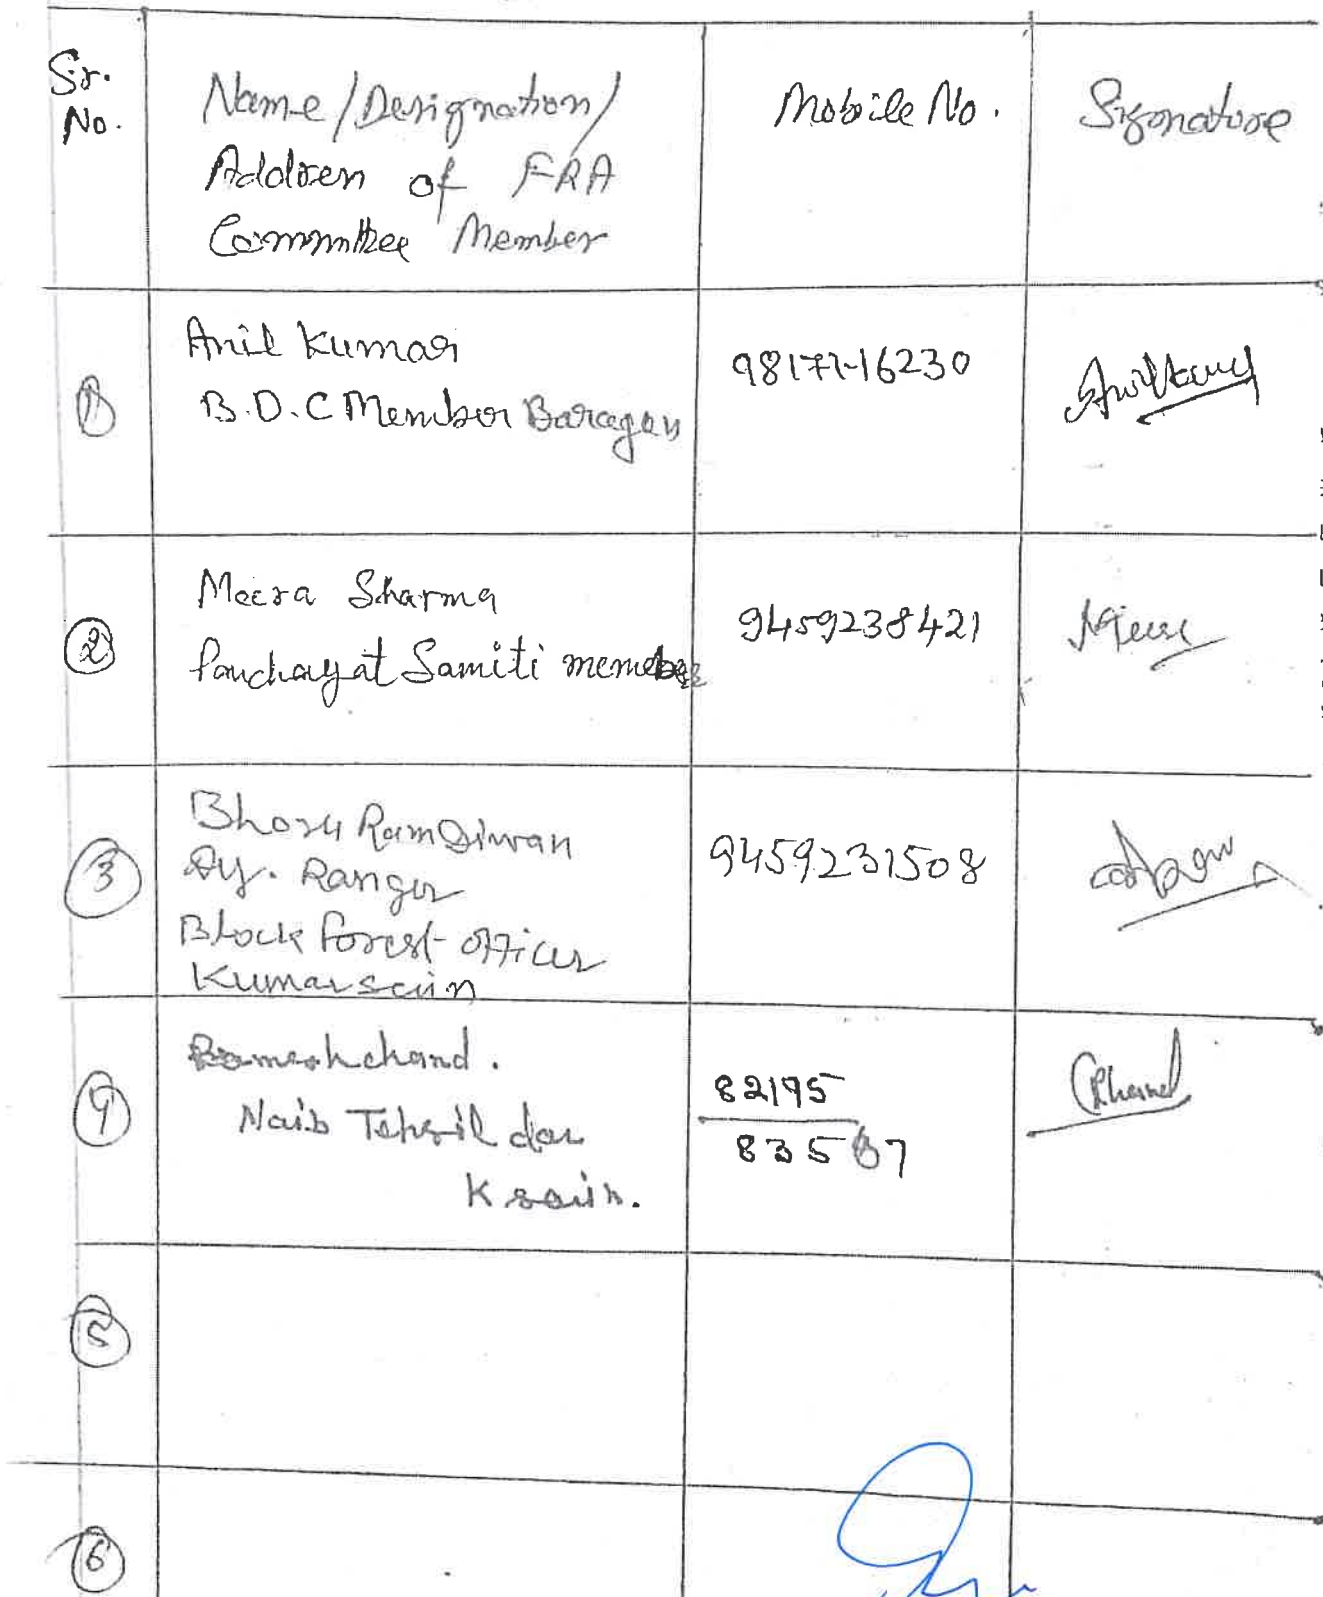 Sr. No.
Name/Designation/
Address of FRA
Committee Member
Mobile No.
Signature
1
Anil Kumar
B.D.C Member Baragaon
98177-16230
2
Meera Sharma
Panchayat Samiti memeber
9459238421
3
Ram Diwan
Dy. Ranger
Block Forest officer
Kumarsain
9459231508
4
Rameshchand.
Naib Tehsildar
Ksain.
82195
835 7
5
6